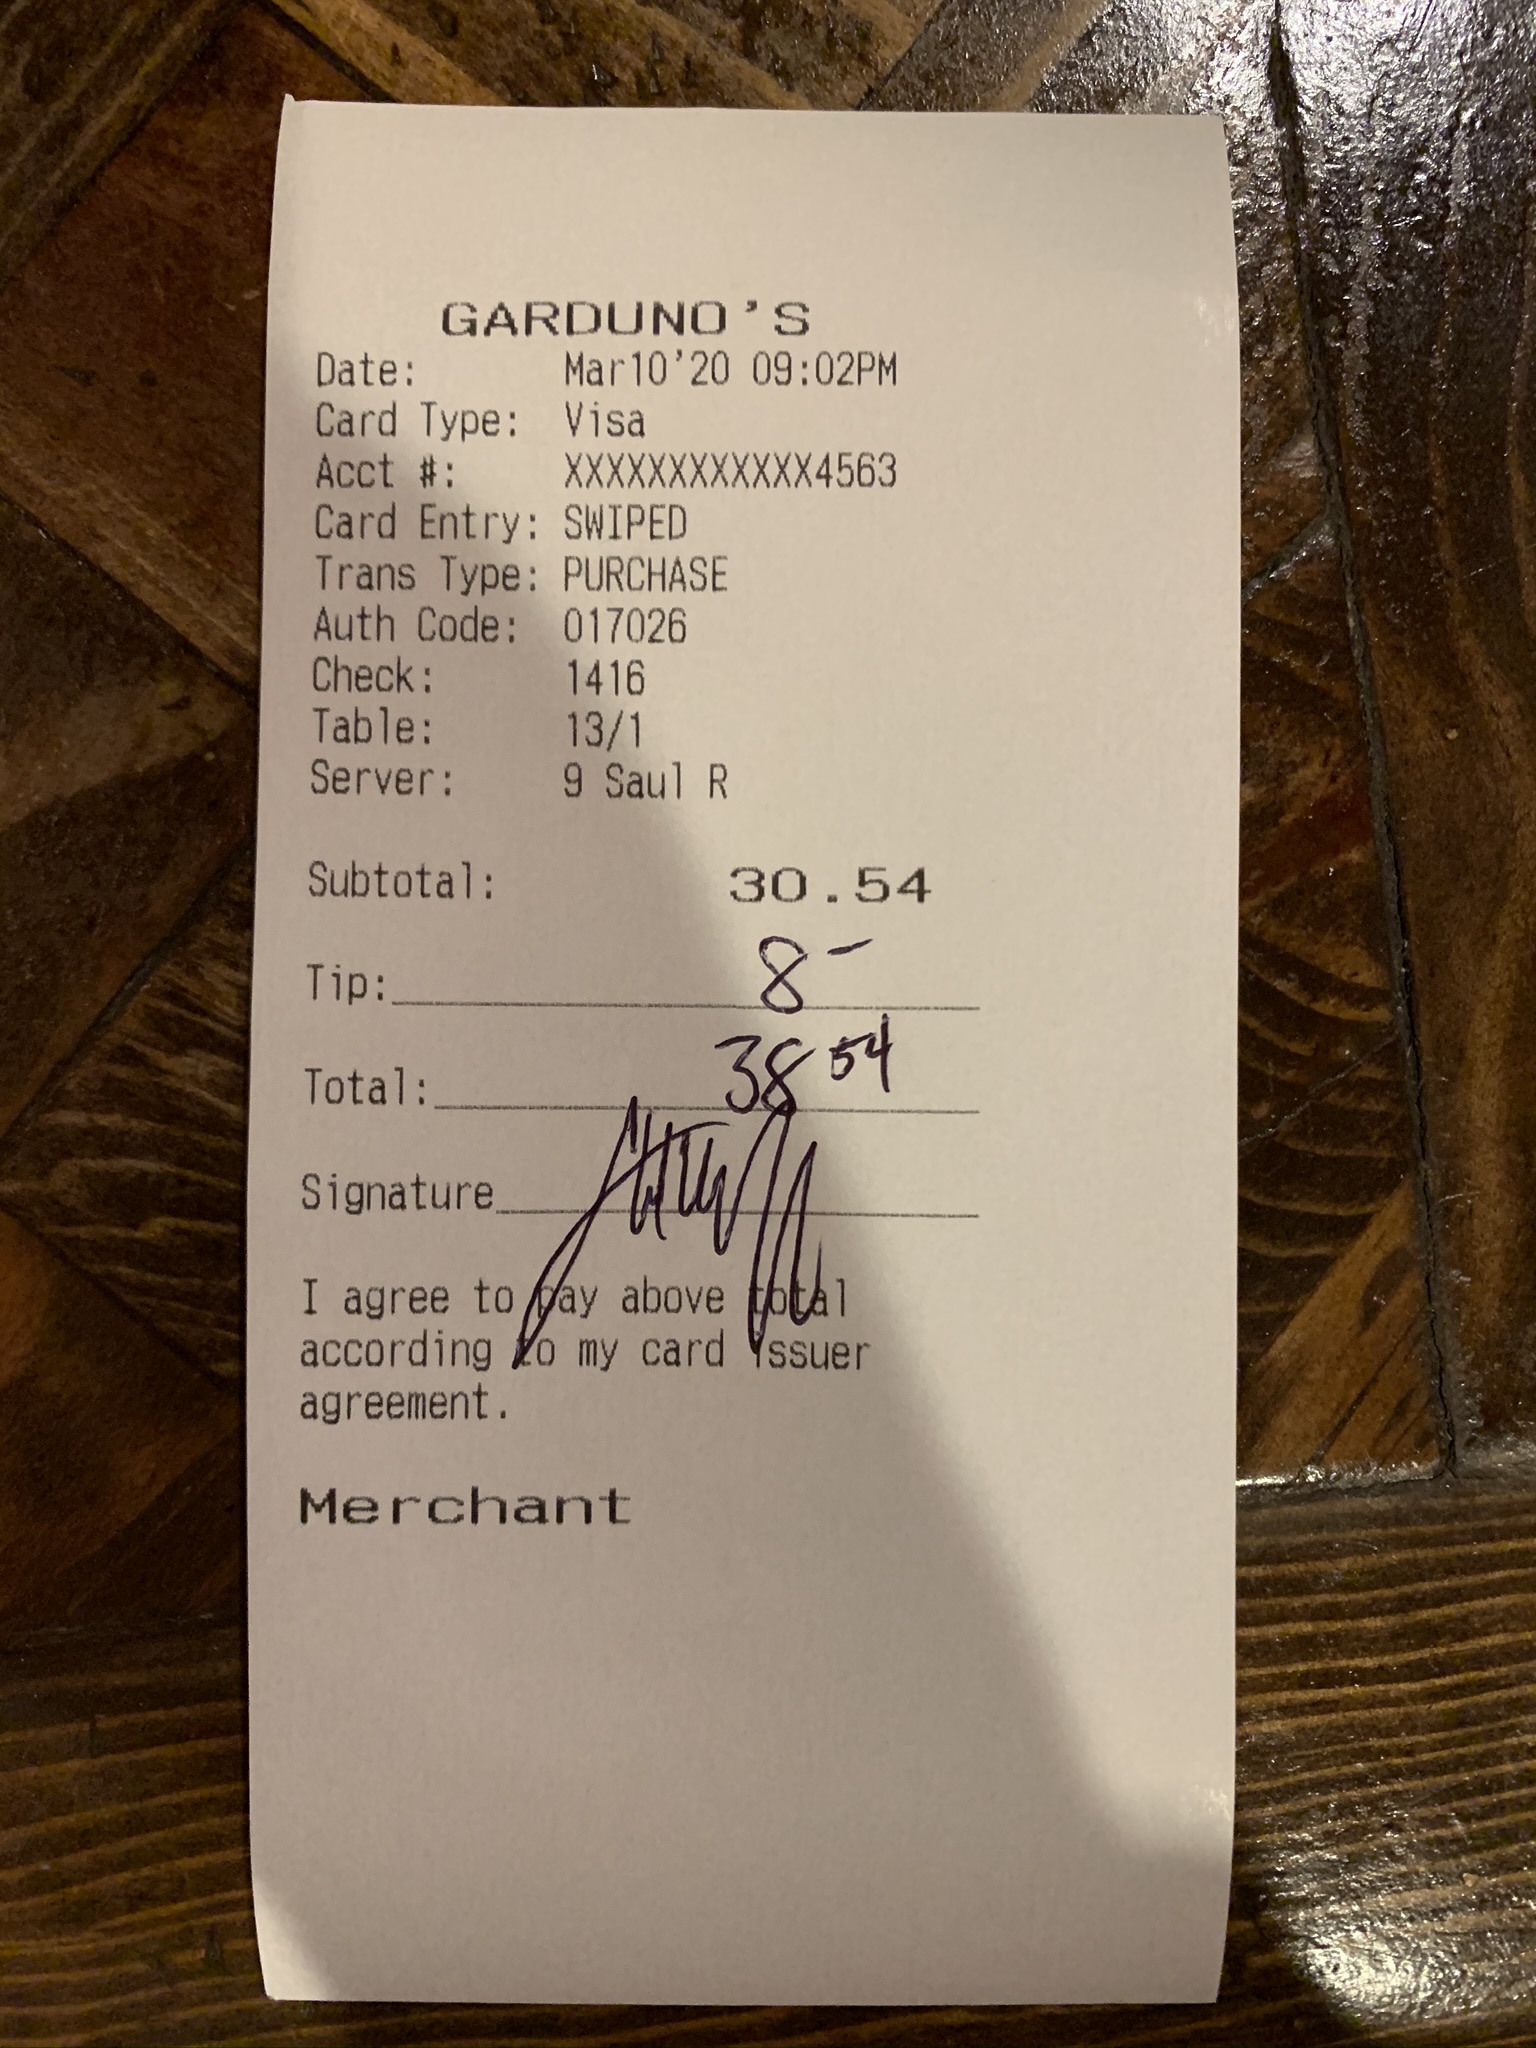 GARDUNO'S
Date: Mar10'20 09:02PM
Card Type: Visa
Acct #: XXXXXXXXXXXX4563
Card Entry: SWIPED
Trans Type: PURCHASE
Auth Code: 017026
Check: 1416
Table: 13/1
Server: 9 Saul R
Subtotal: 30.54
Tip: 8-
Total: 38 54
Signature
I agree to pay above total
according to my card issuer
agreement.
Merchant